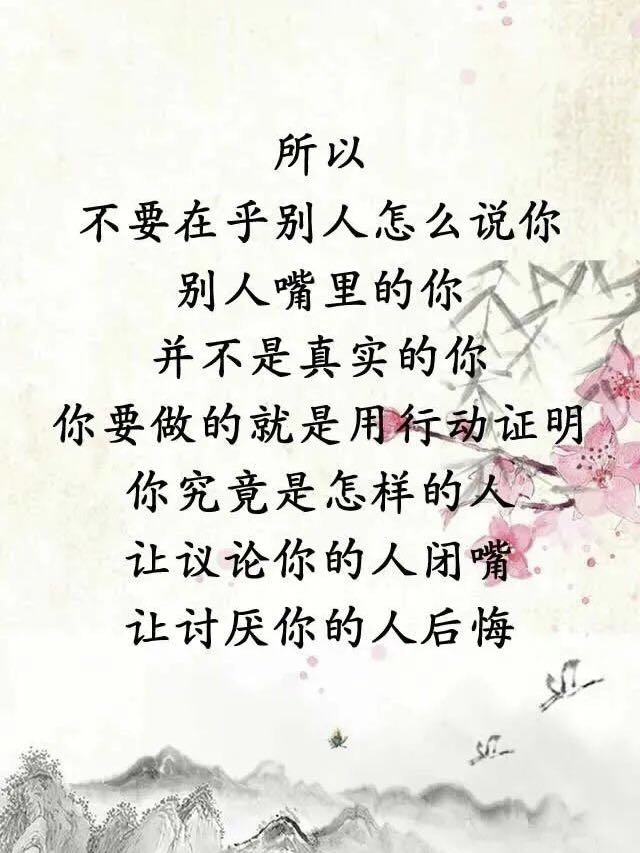 所以
不要在乎别人怎么说你
别人嘴里的你
并不是真实的你
你要做的就是用行动证明
你究竟是怎样的人
让议论你的人闭嘴
让讨厌你的人后悔